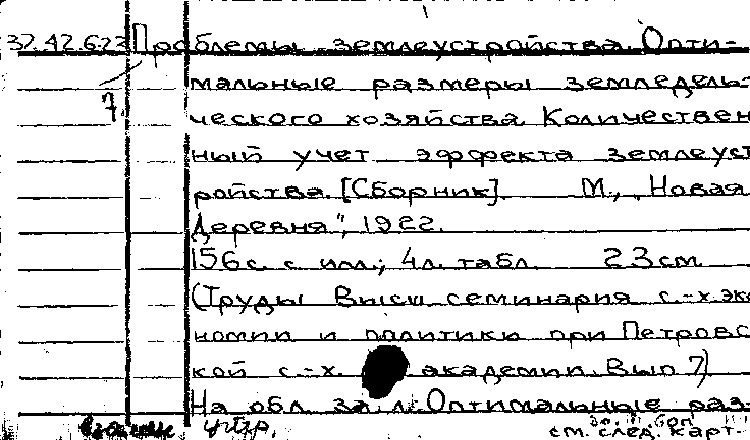 37.42.6.23 Проблемы землеустройства. Опти-
мальные размеры земледель-
7. ческого хозяйства. Количествен
ный учет эффекта землеуст
ройства. [Сборник]. М., „Новая
Деревня", 1922.
156 с. с илл.; 4 л. табл. 23 см
(Труды Высш семинария с.-х. эко
номии и политики при Петровс
кой с.-х. академии. Вып 7)
На обл. загл.: Оптимальные раз-
см. след. карт.